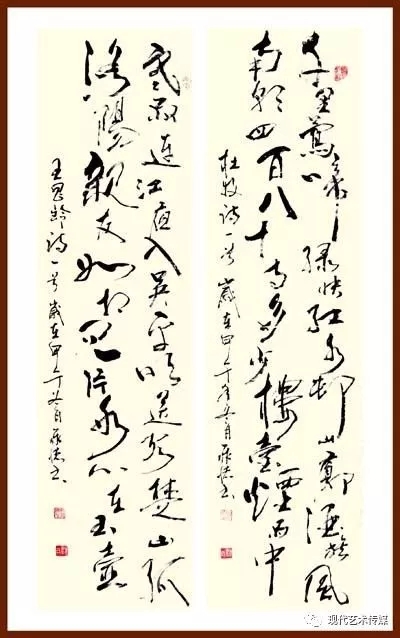 千里鶯啼绿映红水邨山郭酒旗風
南朝四百八十寺多少樓臺煙雨中
杜牧诗一首 歲在甲午年冬月书
寒雨連江夜入吴平明送客楚山孤
洛陽親友如相问一片冰心在玉壺
王昌龄诗一首 歲在甲午冬月书
现代艺术传媒